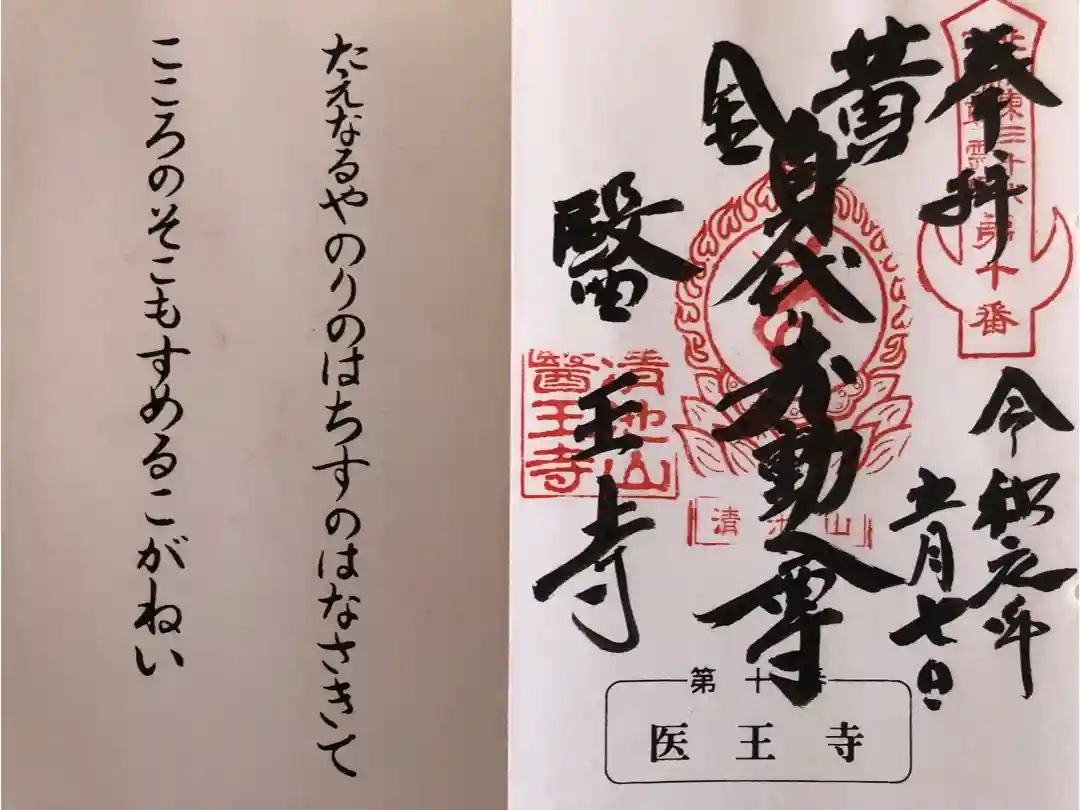 奉拝
第十番
令和元年
十一月七日
黄金
身代不動尊
清池山
醫王寺
清池山
醫王寺
第十番
医王寺
たえなるやのりのはちすのはなさきて
こころのそこもすめるこがねい